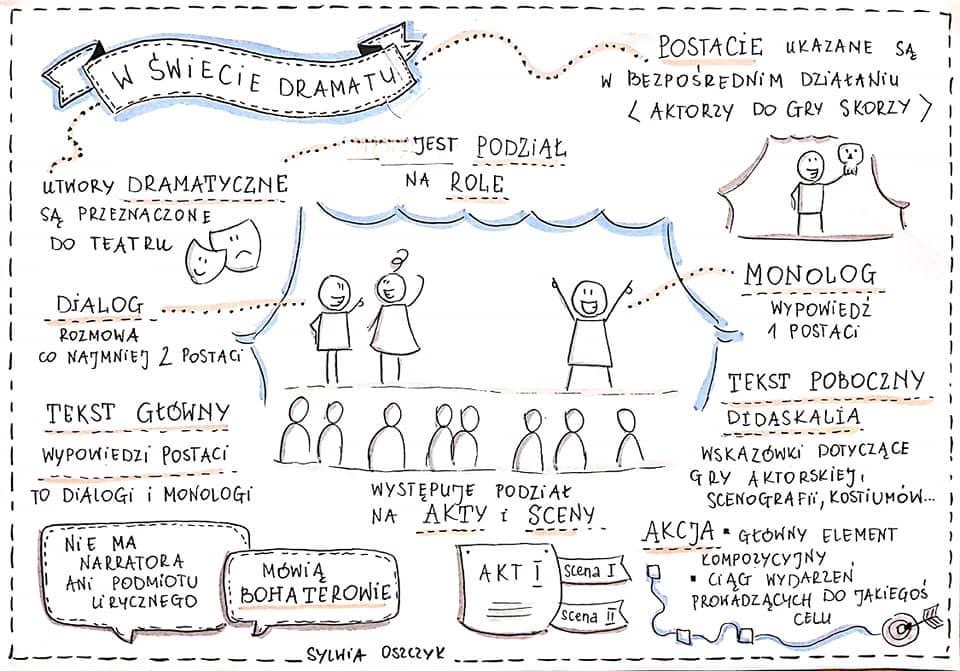 W ŚWIECIE DRAMATU
POSTACIE UKAZANE SĄ
W BEZPOŚREDNIM DZIAŁANIU
< AKTORZY DO GRY SKORZY >
JEST PODZIAŁ
NA ROLE
UTWORY DRAMATYCZNE
SĄ PRZEZNACZONE
DO TEATRU
DIALOG
ROZMOWA
CO NAJMNIEJ 2 POSTACI
MONOLOG
WYPOWIEDŹ
1 POSTACI
TEKST GŁÓWNY
WYPOWIEDZI POSTACI
TO DIALOGI I MONOLOGI
TEKST POBOCZNY
DIDASKALIA
WSKAZÓWKI DOTYCZĄCE
GRY AKTORSKIEJ,
SCENOGRAFII, KOSTIUMÓW...
WYSTĘPUJE PODZIAŁ
NA AKTY I SCENY
NIE MA
NARRATORA
ANI PODMIOTU
LIRYCZNEGO
MÓWIĄ
BOHATEROWIE
AKT I
scena I
scena II
AKCJA ▪ GŁÓWNY ELEMENT
KOMPOZYCYJNY
▪ CIĄG WYDARZEŃ
PROWADZĄCYCH DO JAKIEGOŚ
CELU
SYLWIA OSZCZYK